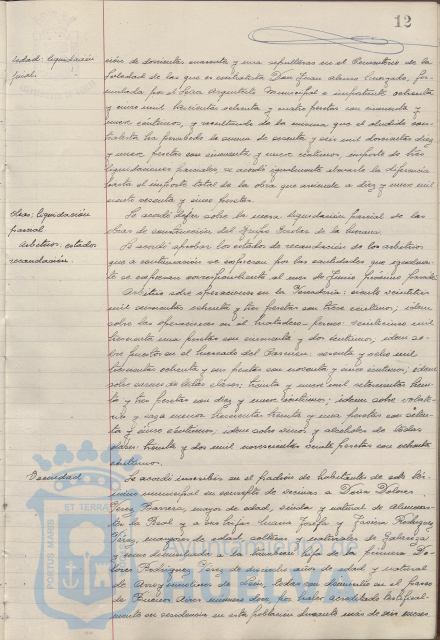 12
sidad: liquidación
final.
ción de doscientas cuarenta y una sepulturas en el Cementerio de la
Soledad de las que es contratista Don Juan
mulada por el Señor Arquitecto Municipal e importante ochenta
y cinco mil trescientas ochenta y cuatro pesetas con cincuenta y
nueve céntimos, y resultando de la misma que el aludido con-
tratista ha percibido la suma de sesenta y seis mil doscientas diez
y nueve pesetas con cincuenta y nueve céntimos, importe de las
liquidaciones parciales se acordó igualmente abonarle la diferencia
hasta el importe total de la obra que asciende a diez y nueve mil
ciento sesenta y cinco pesetas.
Obras: liquidación
parcial
Se acordó dejar sobre la mesa liquidación parcial de las
obras de construcción del Grupo Escolar de la
Arbitrios: estados
recaudación.
Se acordó aprobar los estados de recaudación de los arbitrios
que a continuación se expresan por las cantidades que igualmen-
te se expresan correspondiente al mes de Junio próximo pasado:
Arbitrio sobre operaciones en la Pescadería: ciento veintitres
mil ochenta y tres pesetas con trece céntimos; idem
sobre las operaciones en el Matadero veinticinco mil
una pesetas con cincuenta y dos céntimos; idem so-
bre puestos en el Mercado sesenta y ocho mil
ochenta y seis pesetas con noventa y cinco céntimos; idem
sobre carnes de todas clases: treinta y nueve mil setecientas trein-
ta y tres pesetas con diez y nueve céntimos; idem sobre volate-
ría y caza menor trescientas treinta y una pesetas con ochen-
ta y cinco céntimos; idem sobre vinos y alcoholes de todas
clases: treinta y dos mil novecientas veinte pesetas con ochenta
céntimos.
Vecindad
Se acordó inscribir en el padrón de habitantes de este tér-
mino municipal en concepto de vecinas a Doña Dolores
Pérez Barrera, mayor de edad, viuda y natural de
la Real y a sus hijas Juana Josefa y Rodríguez
Pérez, mayores de edad, solteras y naturales de
y como domiciliada a la también hija de la primera Do-
lores Rodríguez Pérez de dieciocho años de edad y natural
de de León, todas con domicilio en el paseo
de Buenos Aires número doce, por haber acreditado testifical-
mente su residencia en esta población durante más de seis meses.
PORTUS MAGNIS ET TERRA
Ayuntamiento de